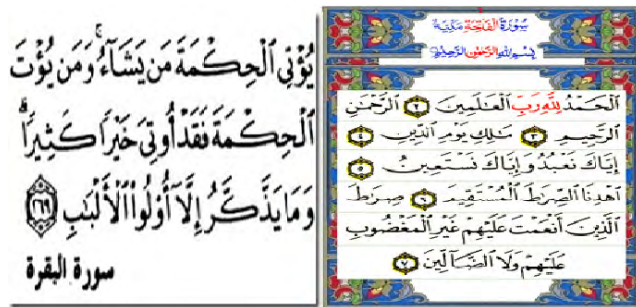 يُؤْتِي الْحِكْمَةَ مَن يَشَاءُ ۚ وَمَن يُؤْتَ
الْحِكْمَةَ فَقَدْ أُوتِيَ خَيْرًا كَثِيرًا ۗ
وَمَا يَذَّكَّرُ إِلَّا أُولُوا الْأَلْبَابِ ٢٦٩
سورة البقرة
سُورَةُ الْفَاتِحَةِ مَكِّيَّة
بِسْمِ اللَّهِ الرَّحْمَٰنِ الرَّحِيمِ
الْحَمْدُ لِلَّهِ رَبِّ الْعَالَمِينَ ٢ الرَّحْمَٰنِ
الرَّحِيمِ ٣ مَالِكِ يَوْمِ الدِّينِ ٤
إِيَّاكَ نَعْبُدُ وَإِيَّاكَ نَسْتَعِينُ ٥
اهْدِنَا الصِّرَاطَ الْمُسْتَقِيمَ ٦ صِرَاطَ
الَّذِينَ أَنْعَمْتَ عَلَيْهِمْ غَيْرِ الْمَغْضُوبِ
عَلَيْهِمْ وَلَا الضَّالِّينَ ٧